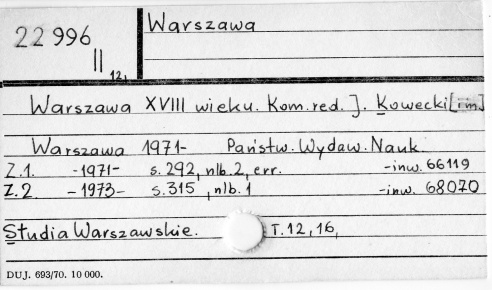 22 996
II
12,
Warszawa
Warszawa XVIII wieku. Kom. red. J. Kowecki [i in.]
Warszawa 1971- Państw. Wydaw. Nauk.
Z.1. -1971- s. 292, nlb. 2, err. -inw. 66119
Z.2. -1973- s. 315, nlb. 1 -inw. 68070
Studia Warszawskie. T. 12, 16,
DUJ. 693/70. 10 000.